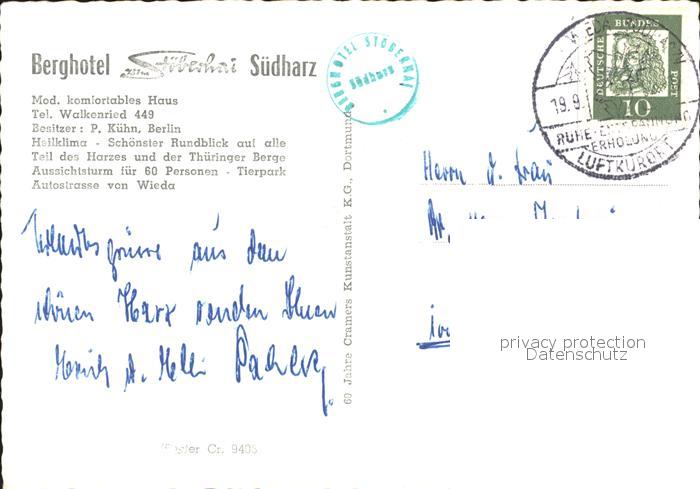 Berghotel Stöberhai Südharz
Mod. komfortables Haus
Tel. Walkenried 449
Besitzer: P. Kühn, Berlin
Heilklima - Schönster Rundblick auf alle
Teil des Harzes und der Thüringer Berge
Aussichtsturm für 60 Personen - Tierpark
Autostrasse von Wieda
BERGHOTEL STÖBERHAI
Südharz
DEUTSCHE BUNDESPOST
10
19.9.
RUHE-
ERHOLUNG
LUFTKURORT
Herrn u. Frau
Urlaubsgrüsse aus dem
schönen Harz senden Ihnen
60 Jahre Cramers Kunstanstalt K.G., Dortmund
Cr. 9405
privacy protection
Datenschutz